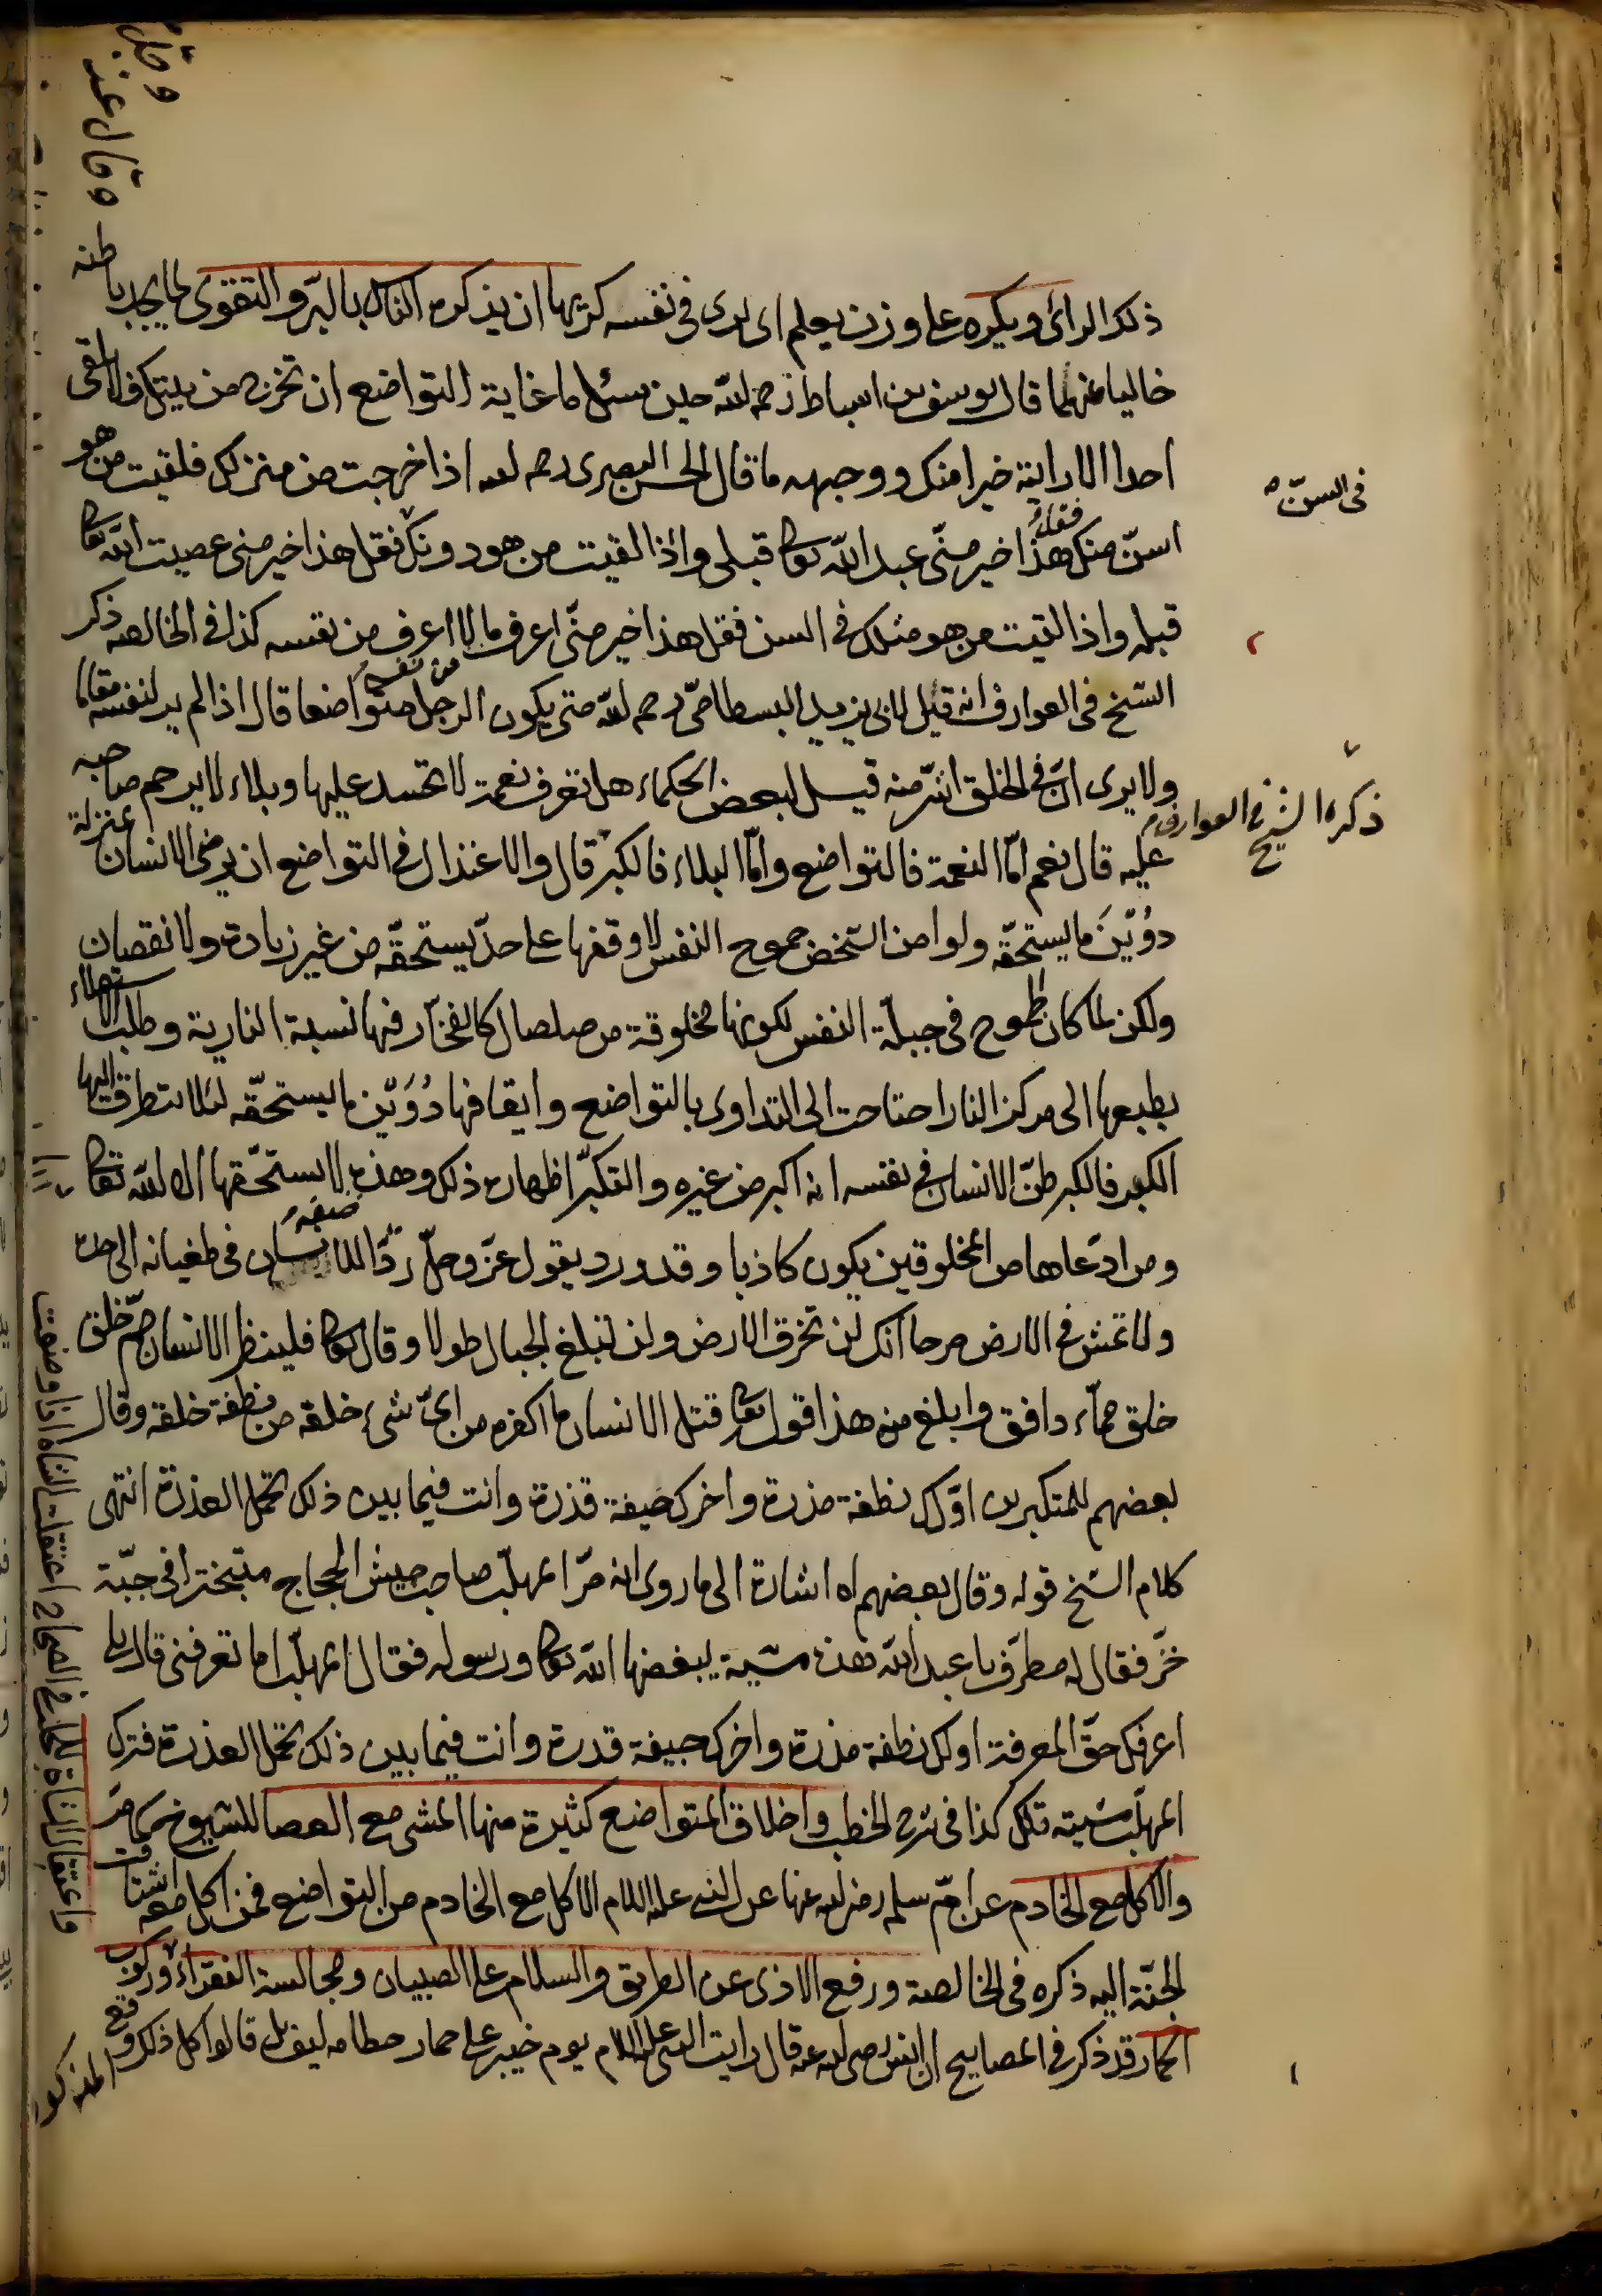 ذلك الرائى ويكره على وزن يعلم اى يرى فى نفسه كريها ان يذكره الناس بالبرّ والتقوى لما يجد باطنه
خاليا عنهما قال يوسف بن اسباط رحمه الله حين سئل ما غاية التواضع ان تخرج من بيتك فلا تلقى
احدا الا رايته خيرا منك ووجهه ما قال الحسن البصرى رحمه الله اذا خرجت من منزلك فلقيت من هو
اسنّ منك فقل هذا خير منّى عبد الله تعالى قبلى واذا لقيت من هو دونك فقل هذا خير منى عصيت الله تعالى
قبله واذا لقيت من هو مثلك فى السن فقل هذا خير منّى اعرف ما لا اعرف من نفسه كذا فى الخالصة ذكر
الشيخ فى العوارف انه قيل لابى يزيد البسطامىّ رحمه الله متى يكون الرجل متواضعا قال اذا لم ير لنفسه مقاما
ولا يرى انّ فى الخلق اشرّ منه قيل لبعض الحكماء هل تعرف نعمة لا تحسد عليها وبلاء لا يرحم صاحبه
عليه قال نعم امّا النعمة فالتواضع وامّا البلاء فالكبر قال والاعتدال فى التواضع ان يرضى الانسان بمنزلة
دُوَيْنَ ما يستحقّه ولو امن الشخص جموح النفس لاوقفها على حدّ يستحقّه من غير زيادة ولا نقصان
ولكن لما كان طموح فى جبلّة النفس لكونها مخلوقة من صلصال كالفخّار فيها نسبة النارية وطلب الاستعلاء
بطبعها الى مركز النار احتاجت الى التداوى بالتواضع وايقافها دُوَيْن ما يستحقّه لئلا يتطرق اليها
الكبر فالكبر ظنّ الانسان فى نفسه انه اكبر من غيره والتكبّر اظهاره ذلك وهذه صفة لا يستحقّها الا الله تعالى
ومن ادّعاها من المخلوقين يكون كاذبا وقد ورد يقول عزّ وجلّ ردّا للانسان فى طغيانه الى حدّه
ولا تمش فى الارض مرحا انك لن تخرق الارض ولن تبلغ الجبال طولا وقال تعالى فلينظر الانسان ممّ خلق
خلق من ماء دافق وابلغ من هذا قوله تعالى قتل الانسان ما اكفره من اىّ شىء خلقه من نطفة خلقه وقال
بعضهم للمتكبرين اوّلك نطفة مذرة واخرك جيفة قذرة وانت فيما بين ذلك تحمل العذرة انتهى
كلام الشيخ قوله وقال بعضهم اه اشارة الى ما روى انه مرّ المهلّب صاحب جيش الحجاج متبخترا فى جبّة
خزّ فقال له مطرّف يا عبد الله هذه مشية يبغضها الله تعالى ورسوله فقال المهلّب اما تعرفنى قال بلى
اعرفك حقّ المعرفة اولك نطفة مذرة واخرك جيفة قذرة وانت فيما بين ذلك تحمل العذرة فترك
المهلّب مشيته تلك كذا فى شرح الخطب واخلاق المتواضع كثيرة منها المشى مع العصا للشيوخ كما مرّ
والاكل مع الخادم عن امّ سلمة رضى الله عنها عن النبى عليه السلام الاكل مع الخادم من التواضع فمن اكل معه اشتاقت
الجنّة اليه ذكره فى الخالصة ورفع الاذى عن الطريق والسلام على الصبيان ومجالسة الفقراء وركوب
الحمار قد ذكر فى المصابيح ان انس رضى الله عنه قال رايت النبى عليه السلام يوم خيبر على حمار خطامه ليف بل قالوا كل ذلك وقع
المذكور
فى السنّ
من نفسى
ذكره الشيخ فى العوارف
وقال عند
واعتقال الشاة للحلب فى الصحاح اعتقلت الشاة اذا وضعت